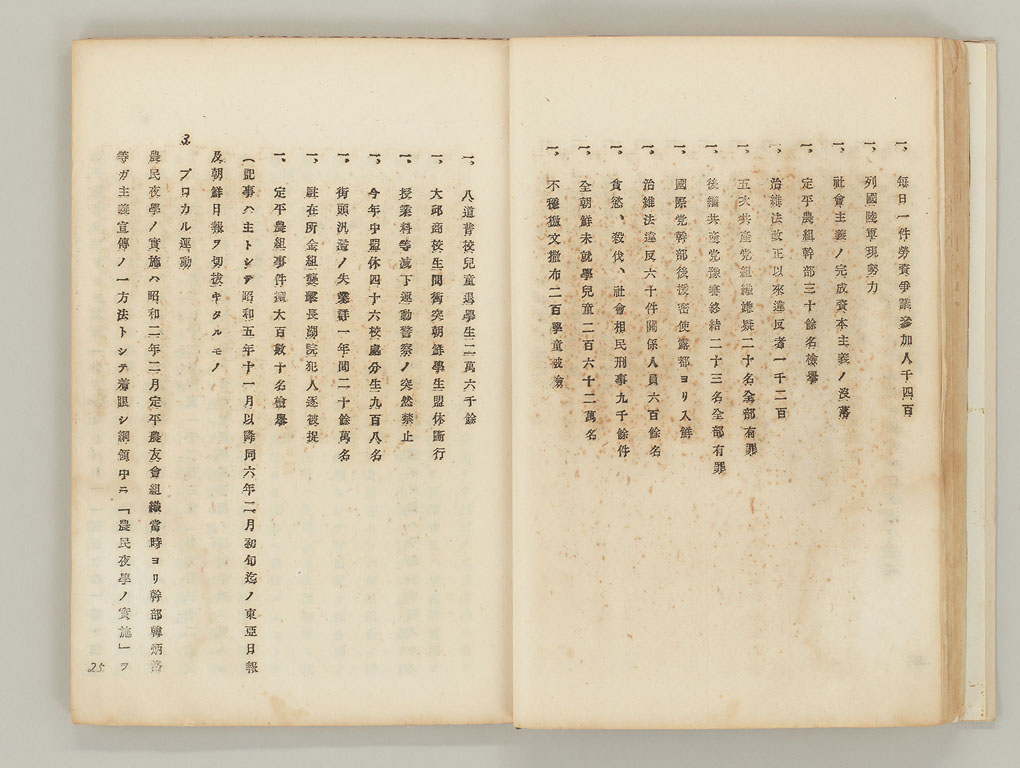 一、每日一件勞資爭議參加人千四百
一、列國陸軍現勢力
一、社會主義ノ完成資本主義ノ沒落
一、定平農組幹部三十餘名檢擧
一、治維法改正以來違反者一千二百
一、五次共產党組織嫌疑二十名全部有罪
一、後繼共產党豫審終結二十三名全部有罪
一、國際党幹部後援密使露都ヨリ入鮮
一、治維法違反六十件關係人員六百餘名
一、貪慾、殺伐、社會相民刑事九千餘件
一、全朝鮮未就學兒童二百六十二萬名
一、不穩檄文撒布二百學童被檢
一、八道普校兒童退學生二萬六千餘
一、大邱商校生間衝突朝鮮學生盟休斷行
一、授業料等減下運動警察ノ突然禁止
一、今年中盟休四十六校處分生九百八名
一、街頭汎濫ノ失業群一年間二十餘萬名
一、駐在所金組襲擊長湖院犯人逐被捉
一、定平農組事件擴大百數十名檢擧
(記事ハ主トシテ昭和五年十一月以降同六年二月初旬迄ノ東亞日報
及朝鮮日報ヲ切拔キタルモノ
3. プロカル運動
農民夜學ノ實施ハ昭和二年二月定平農友會組織當時ヨリ幹部韓炳洛
等ガ主義宣傳ノ一方法トシテ着眼シ綱領中ニ「農民夜學ノ實施」ヲ
25